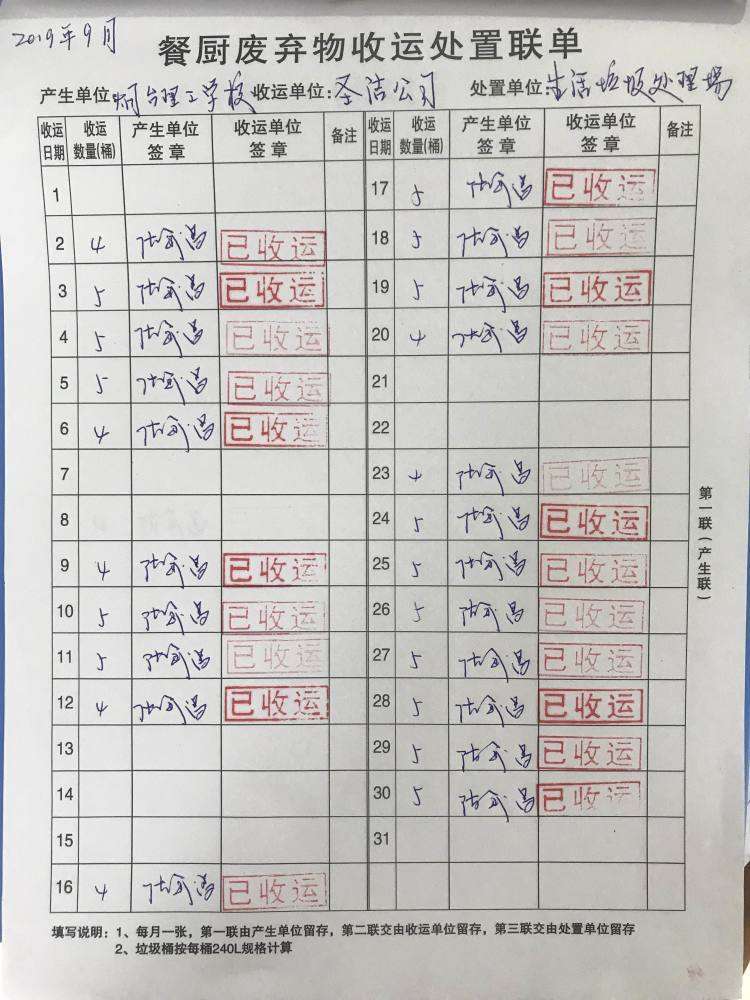 2019年9月
餐厨废弃物收运处置联单
产生单位:烟台理工学校 收运单位:圣洁公司 处置单位:生活垃圾处理场
收运日期 收运数量(桶) 产生单位签章 收运单位签章 备注 收运日期 收运数量(桶) 产生单位签章 收运单位签章 备注
1 17 5 已收运
2 4 已收运 18 5 已收运
3 5 已收运 19 5 已收运
4 5 已收运 20 4 已收运
5 5 已收运 21
6 4 已收运 22
7 23 4 已收运
8 24 5 已收运
9 4 已收运 25 5 已收运
10 5 已收运 26 5 已收运
11 5 已收运 27 5 已收运
12 4 已收运 28 5 已收运
13 29 5 已收运
14 30 5 已收运
15 31
16 4 已收运
第一联(产生联)
填写说明:1、每月一张,第一联由产生单位留存,第二联交由收运单位留存,第三联交由处置单位留存
2、垃圾桶按每桶240L规格计算